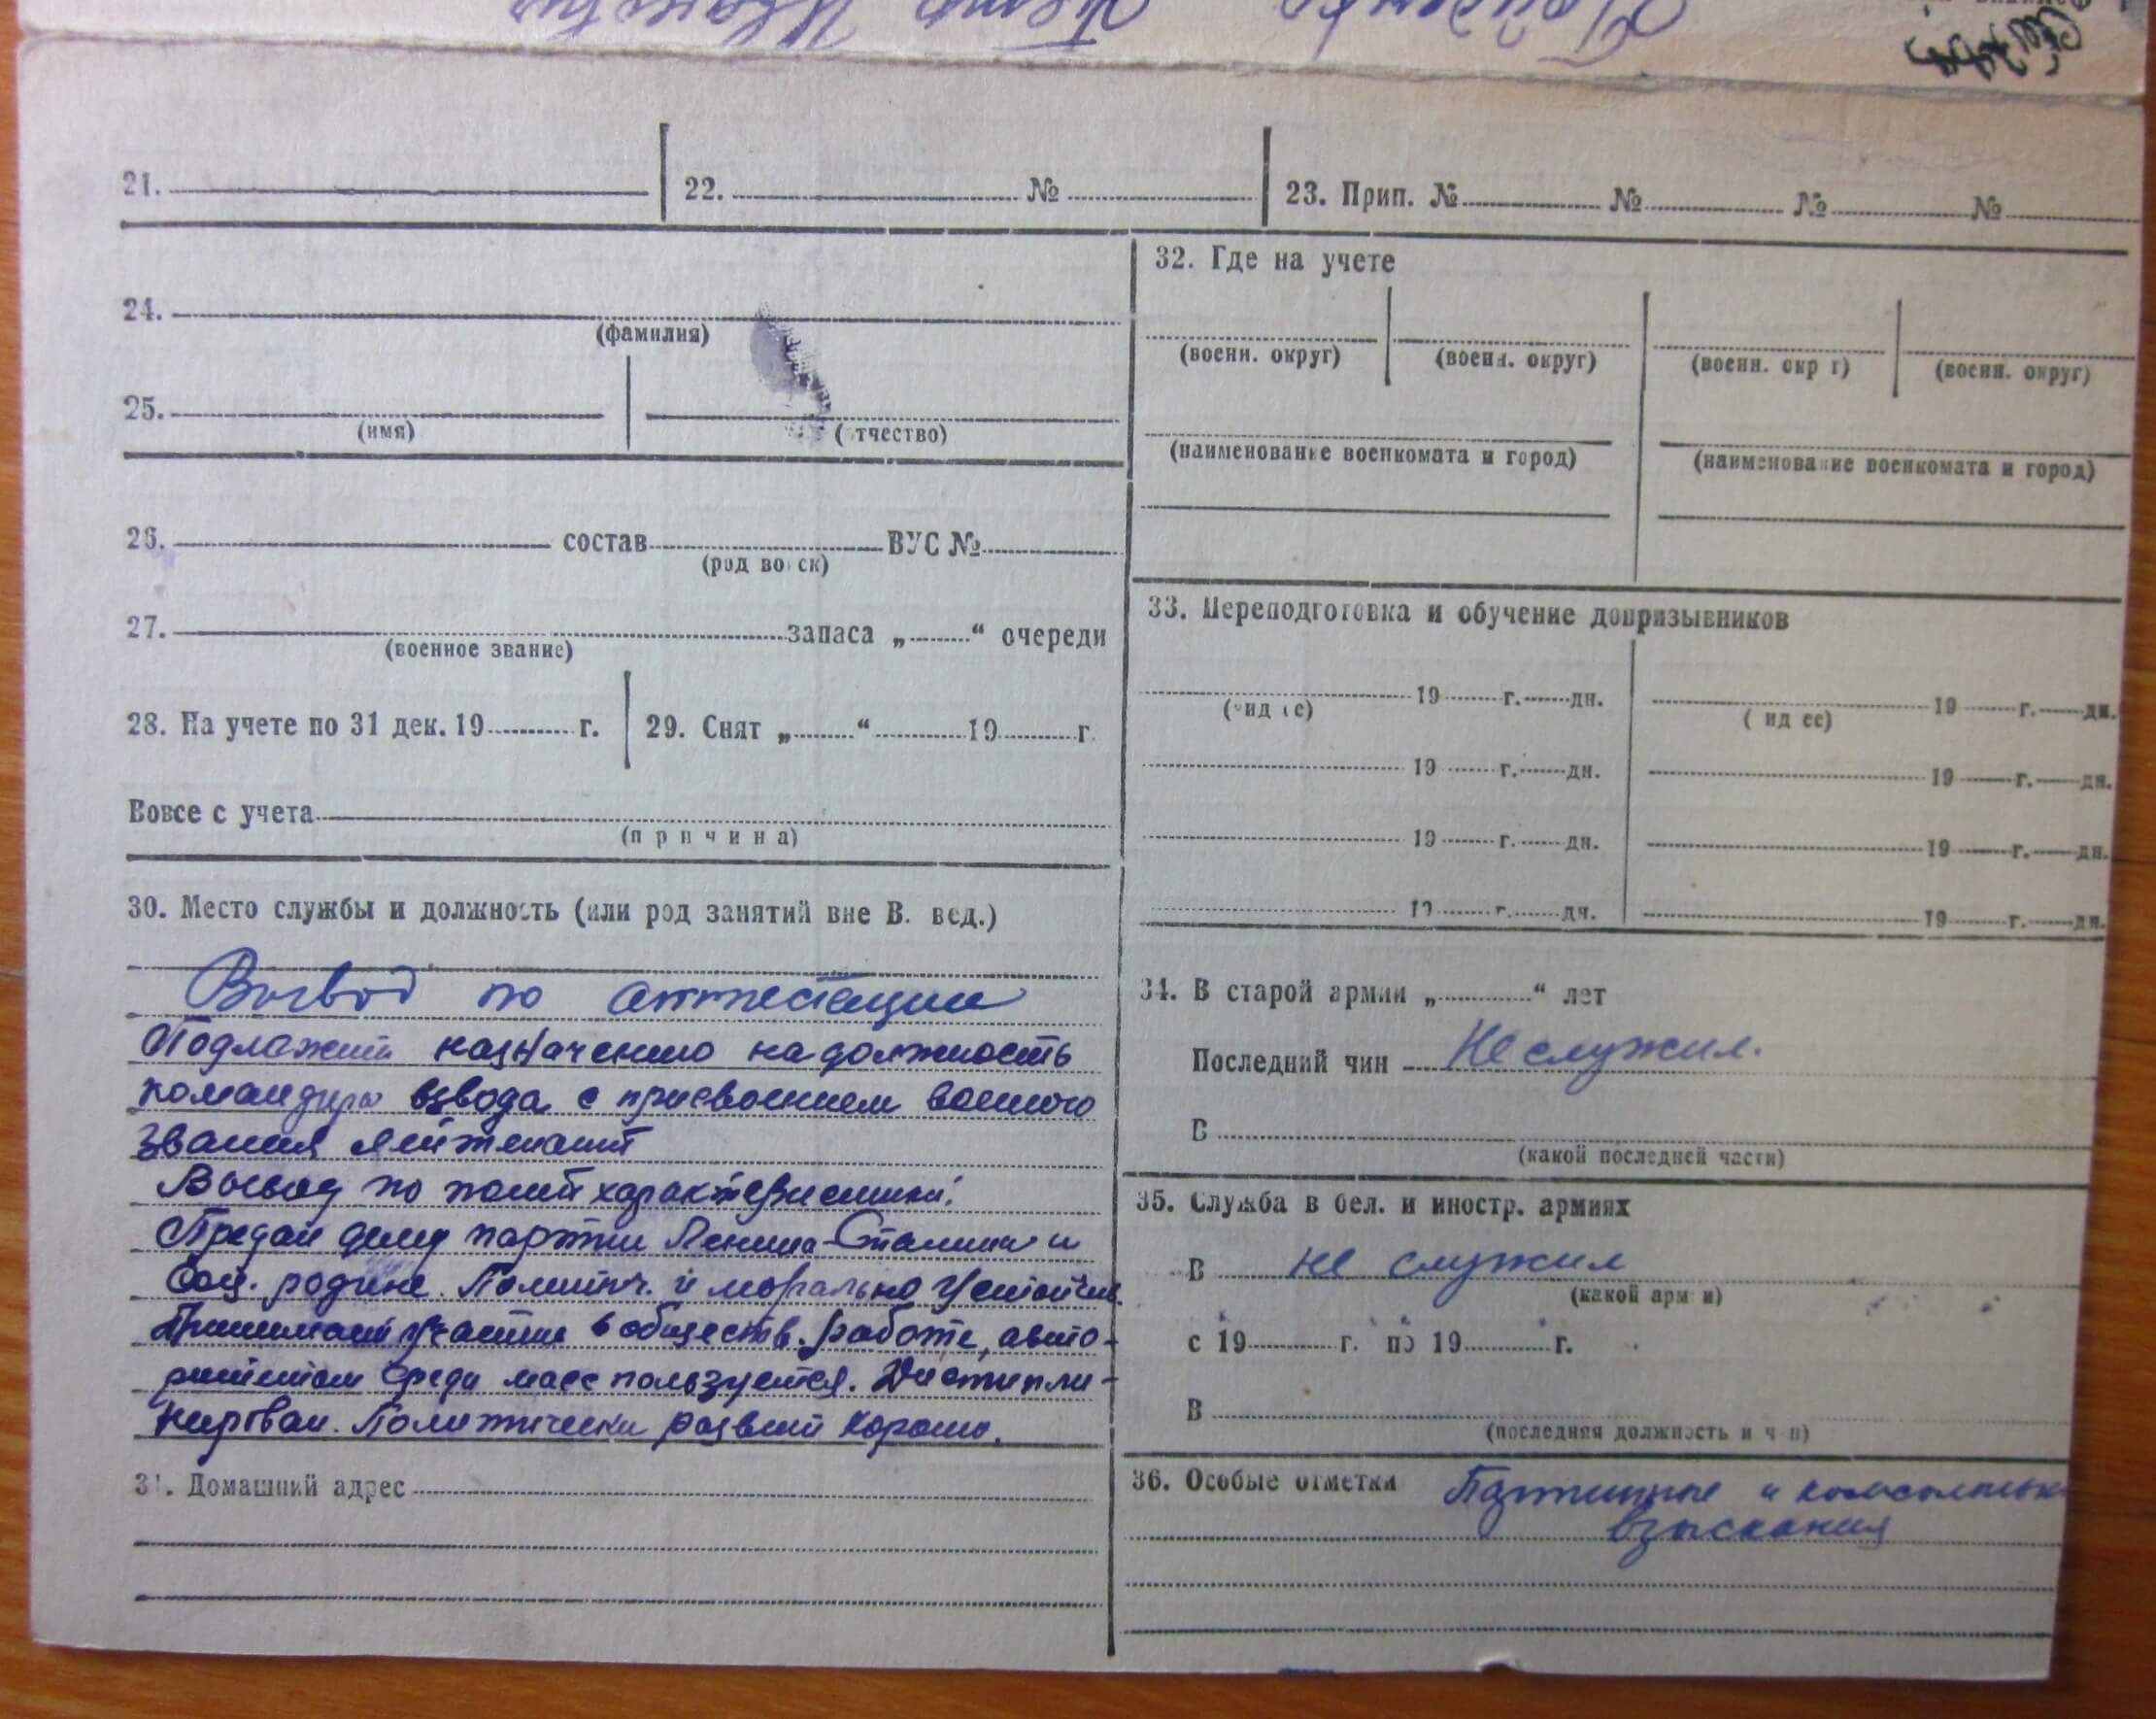 21.
22. №
23. Прип. № № № №
24.
(фамилия)
25.
(имя) ( тчество)
26. состав ВУС №
(род во ск)
27. запаса „ “ очереди
(военное звание)
28. На учете по 31 дек. 19 г.
29. Снят „ “ 19 г.
Вовсе с учета
(причина)
30. Место службы и должность (или род занятий вне В. вед.)
Вывод по аттестации
Подлежит назначению на должность
командира взвода с присвоением военного
звания лейтенант
Вывод по полит характеристики:
Предан делу партии Ленина-Сталина и
Соц. родине. Политич. и морально устойчив.
Принимает участие в обществ. работе, авто-
ритетом среди масс пользуется. Дисципли-
нирован. Политически развит хорошо.
31. Домашний адрес
32. Где на учете
(военн. округ) (военн. округ) (военн. окр г) (военн. округ)
(наименование военкомата и город) (наименование военкомата и город)
33. Переподготовка и обучение допризывников
19 г. дн. 19 г. дн.
( ид ее) ( ид ее)
19 г. дн. 19 г. дн.
19 г. дн. 19 г. дн.
19 г. дн. 19 г. дн.
34. В старой армии „ “ лет
Последний чин Не служил.
В
(какой последней части)
35. Служба в бел. и иностр. армиях
В не служил
(какой арм и)
с 19 г. по 19 г.
В
(последняя должность и ч н)
36. Особые отметки Партийные и комсомольск
взыскания